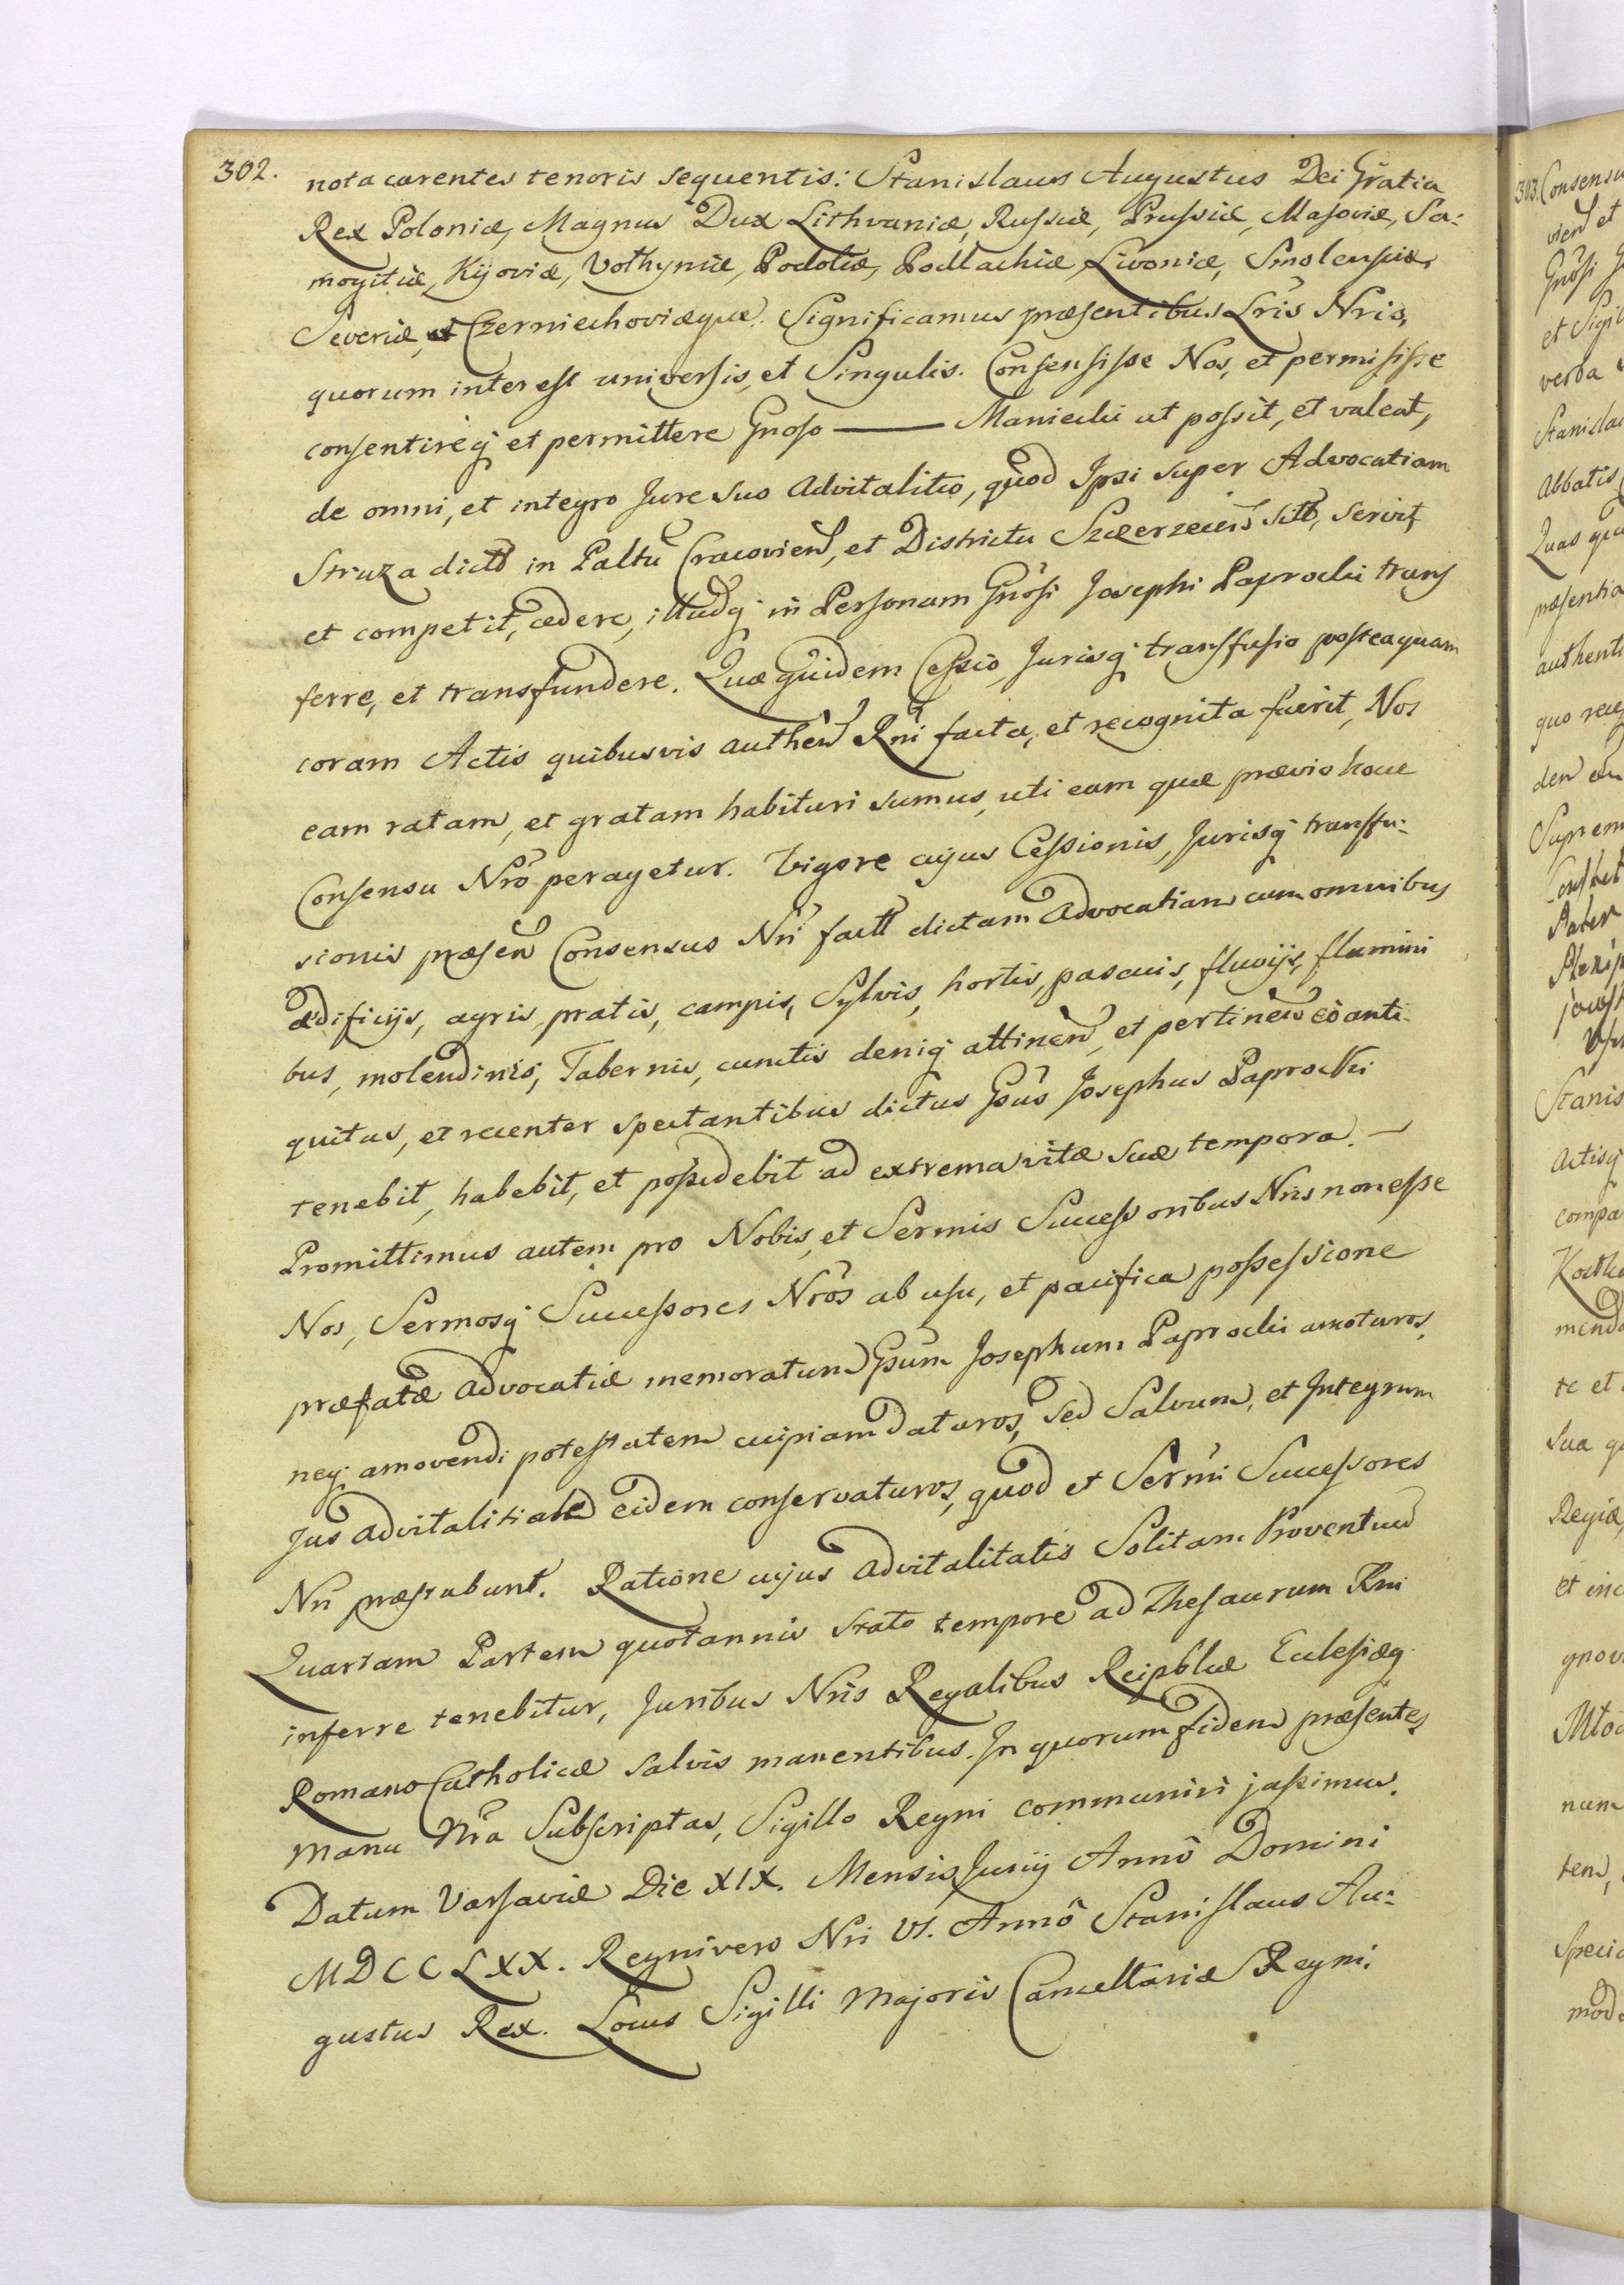 302.
nota carentes tenoris sequentis: Stanislaus Augustus Dei Gratia
Rex Poloniæ, Magnus Dux Lithvaniæ, Russiæ, Prussiæ, Masoviæ, Sa:
mogitiæ, Kijoviæ, Volhyniæ, Podoliæ, Podlachiæ, Livoniæ, Smolensciæ,
Severiæ, et Czerniechoviæque. Significamus præsentibus Lris Nris,
quorum interest universis, et Singulis. Consensisse Nos, et permisisse
consentireq; et permittere Gnoso — Maniecki ut possit, et valeat,
de omni, et integro Jure suo Advitalitio, quod Ipsi super Advocatiam
Struza dictd in Paltu Cracovien, et Districtu Szczerzecen sitt, servit,
et competit, cedere, illudq; in Personam Gnosi Josephi Paprocki trans
ferre, et transfundere. Quæ quidem Cessio, Jurisq; transfusio posteaquam
coram Actis quibusvis authen Rni facta, et recognita fuerit, Nos
eam ratam, et gratam habituri sumus, uti eam quæ prævio hocce
Consensu Nro peragetur. Vigore cujus Cessionis, Jurisq; transfu:
sionis præsen Consensus Nri factt dictam Advocatiam cum omnibus
ædificijs, agris, pratis, campis, Sylvis, hortis, pascuis, fluvijs, flumini
bus, molendinis, Tabernis, cunctis deniq; attinen, et pertinen eò anti
quitus, et recenter spectantibus dictus Gsus Josephus Paprocki
tenebit, habebit, et possidebit ad extrema vitæ suæ tempora. —
Promittimus autem pro Nobis, et Sermis Successoribus Nris non esse
Nos, Sermosq; Successores Nros ab usu, et pacifica possessione
præfatæ Advocatiæ memoratum Gsum Josephum Paprocki amoturos,
neq; amovendi potestatem cuipiam daturos, sed Salvum, et Integrum
Jus advitalitiale eidem conservaturos, quod et Sermi Successores
Nri præstabunt. Ratione cujus Advitalitatis Solitam Proventuum
Quartam Partem quotannis stato tempore ad Thesaurum Rni
inferre tenebitur, Juribus Nris Regalibus Reipblcæ Ecclesiæq;
Romano Catholicæ salvis manentibus. In quorum fidem præsentes
manu Nra Subscriptas, Sigillo Regni communiri jussimus.
Datum Varsaviæ Die XIX. Mensis Junij Annô Domini
MDCCLXX. Regni vero Nri VI. Annô Stanislaus Au:
gustus Rex. Locus Sigilli Majoris Cancellariæ Regni.
303. Consensu
vien et
Gnosi
et Sigil
verba
Stanislau
Abbatis
Quas qu
præsentia
authenti
quo rece
den
Suprem
Pater
Stanis
Actisq;
compa
menda
te et
sua q
Regiæ,
et inc
gnov
num
tem,
Specia
mod